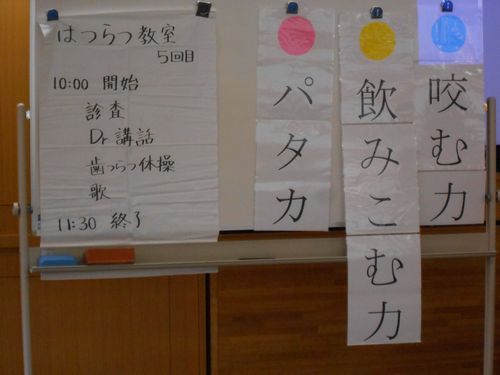 はつらつ教室
5回目
10:00 開始
診査
Dr 講話
歯つらつ体操
歌
11:30 終了
パタカ
飲みこむ力
咬む力